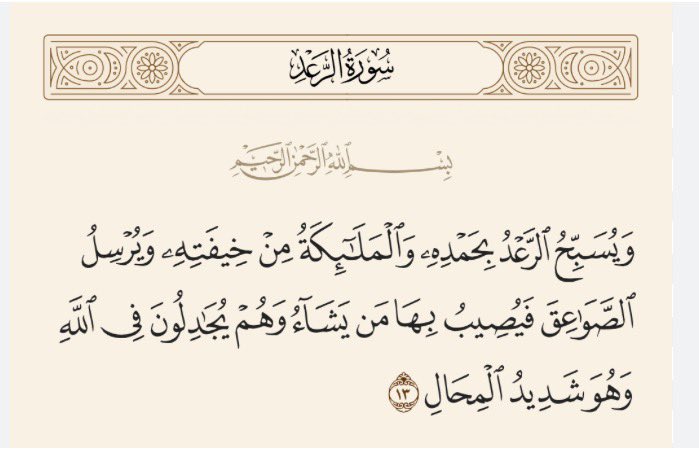 سُورَةُ الرَّعْدِ
بِسْمِ ٱللَّهِ ٱلرَّحْمَٰنِ ٱلرَّحِيمِ
وَيُسَبِّحُ ٱلرَّعْدُ بِحَمْدِهِۦ وَٱلْمَلَـٰٓئِكَةُ مِنْ خِيفَتِهِۦ وَيُرْسِلُ
ٱلصَّوَٰعِقَ فَيُصِيبُ بِهَا مَن يَشَآءُ وَهُمْ يُجَـٰدِلُونَ فِى ٱللَّهِ
وَهُوَ شَدِيدُ ٱلْمِحَالِ ١٣